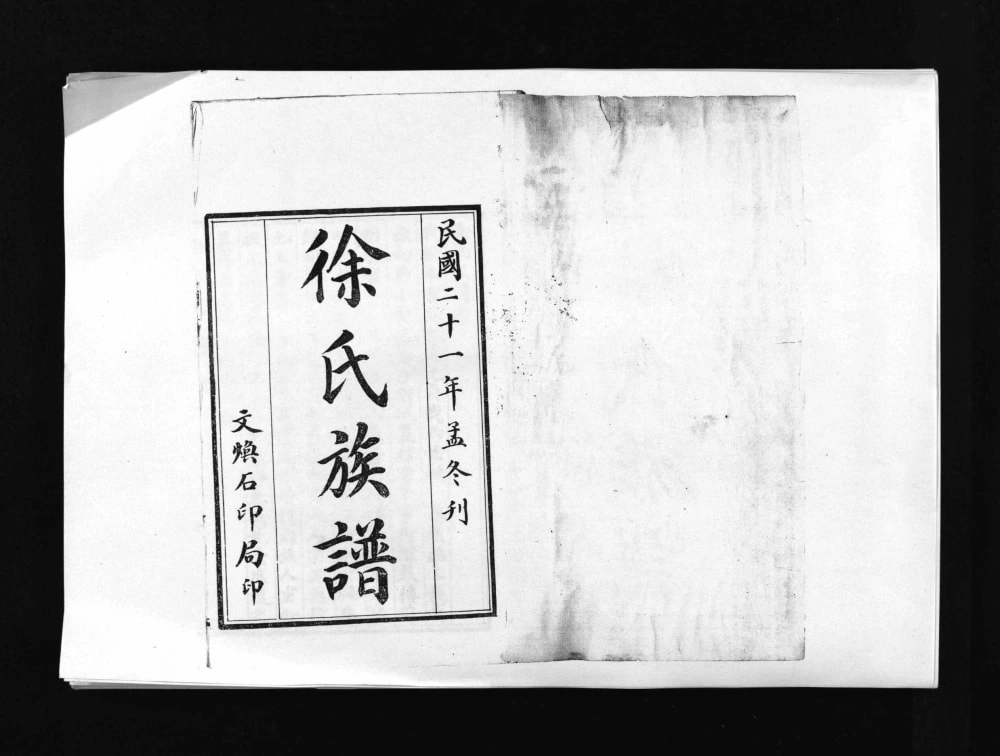 民國二十一年孟冬刋
徐氏族譜
文煥石印局印